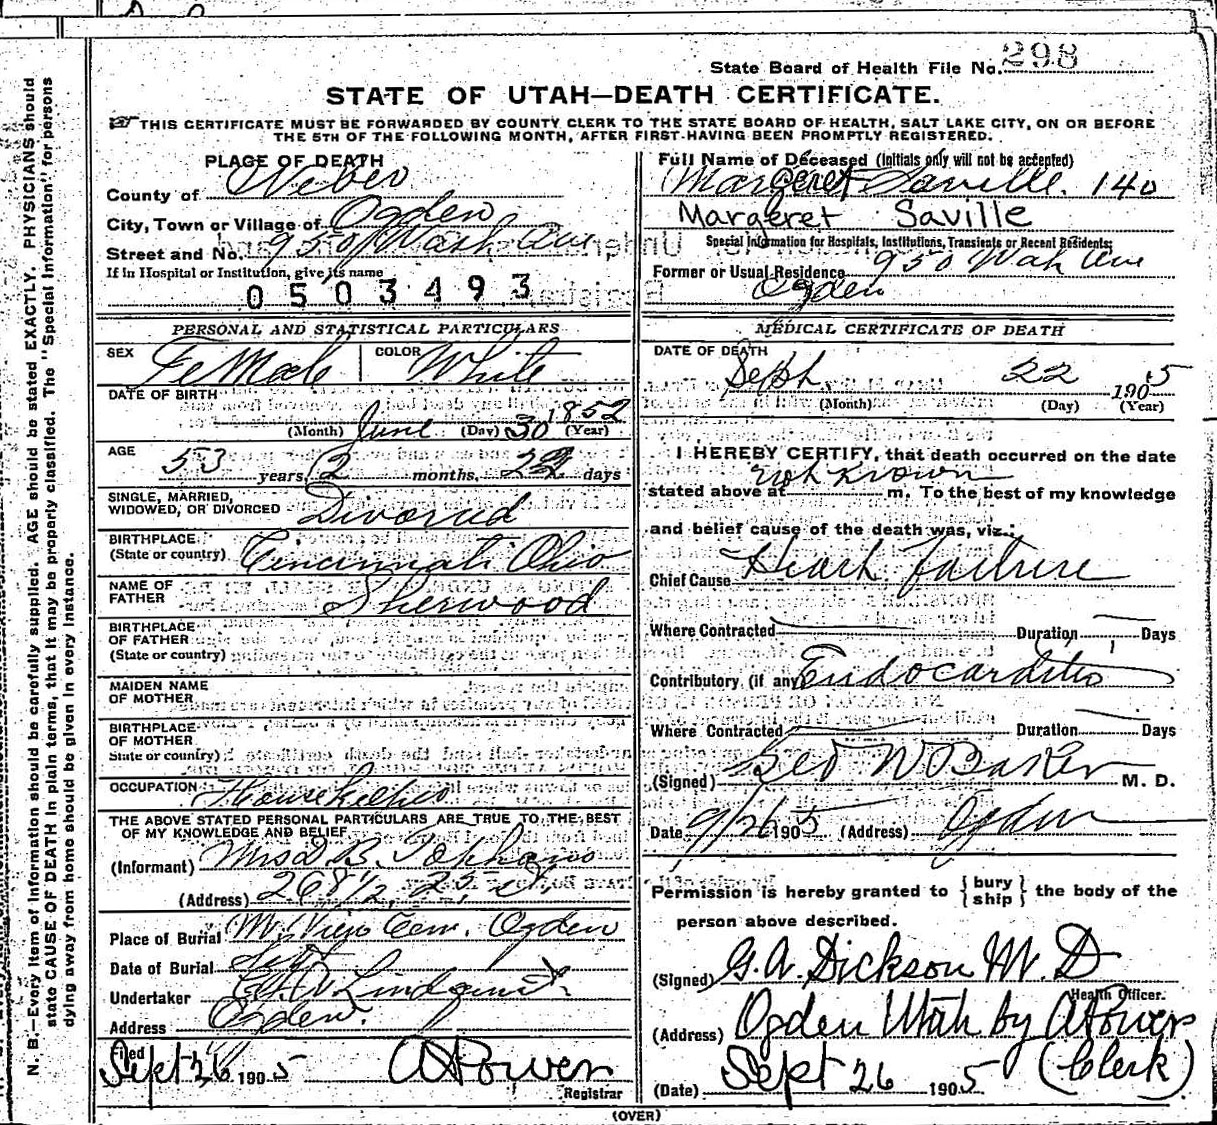 State Board of Health File No. 298
STATE OF UTAH—DEATH CERTIFICATE.
THIS CERTIFICATE MUST BE FORWARDED BY COUNTY CLERK TO THE STATE BOARD OF HEALTH, SALT LAKE CITY, ON OR BEFORE
THE 5TH OF THE FOLLOWING MONTH, AFTER FIRST HAVING BEEN PROMPTLY REGISTERED.
N. B.—Every item of information should be carefully supplied. AGE should be stated EXACTLY. PHYSICIANS should
state CAUSE OF DEATH in plain terms, that it may be properly classified. The "Special Information" for persons
dying away from home should be given in every instance.
PLACE OF DEATH
County of Weber
City, Town or Village of Ogden
Street and No. 950 Wash Ave
If in Hospital or Institution, give its name
0503493
PERSONAL AND STATISTICAL PARTICULARS
SEX FeMale COLOR White
DATE OF BIRTH
(Month) June (Day) 30 1852 (Year)
AGE 53 years, 2 months, 22 days
SINGLE, MARRIED,
WIDOWED, OR DIVORCED Divorced
BIRTHPLACE
(State or country) Cincinnati Ohio
NAME OF
FATHER Sherwood
BIRTHPLACE
OF FATHER
(State or country)
MAIDEN NAME
OF MOTHER
BIRTHPLACE
OF MOTHER
State or country)
OCCUPATION
THE ABOVE STATED PERSONAL PARTICULARS ARE TRUE TO THE BEST
OF MY KNOWLEDGE AND BELIEF
(Informant) Mrs D. B.
(Address) 268 1/2, 25, st
Place of Burial Cem. Ogden
Date of Burial Sept
Undertaker Lindquist
Address Ogden
Filed Sept 26 1905 Registrar
Full Name of Deceased (Initials only will not be accepted)
Margeret Saville. 140
Margeret Saville
Special Information for Hospitals, Institutions, Transients or Recent Residents:
Former or Usual Residence 950 Wah Ave
Ogden
MEDICAL CERTIFICATE OF DEATH
DATE OF DEATH
Sept. 22 1905
(Month) (Day) (Year)
I HEREBY CERTIFY, that death occurred on the date
stated above at not known m. To the best of my knowledge
and belief cause of the death was, viz.:
Chief Cause Heart failure
Where Contracted Duration Days
Contributory (if any) Endocarditis
Where Contracted Duration Days
(Signed) Geo W Baker M. D.
Date 9/26 1905 (Address) Ogden
Permission is hereby granted to { bury ship } the body of the
person above described.
(Signed) G. A. Dickson M. D
Health Officer.
(Address) Ogden Utah by
(Date) Sept 26 1905 (Clerk)
(OVER)